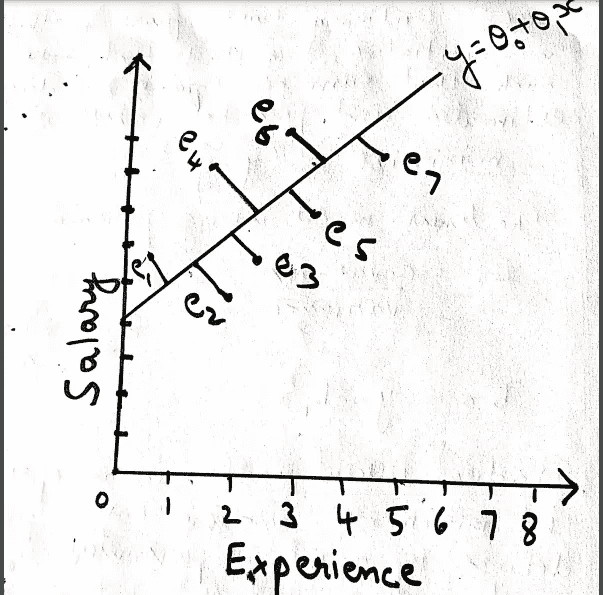 y = θ₀ + θ₁x
e₆
e₄
e₇
e₅
e₁
e₃
e₂
Salary
0 1 2 3 4 5 6 7 8
Experience